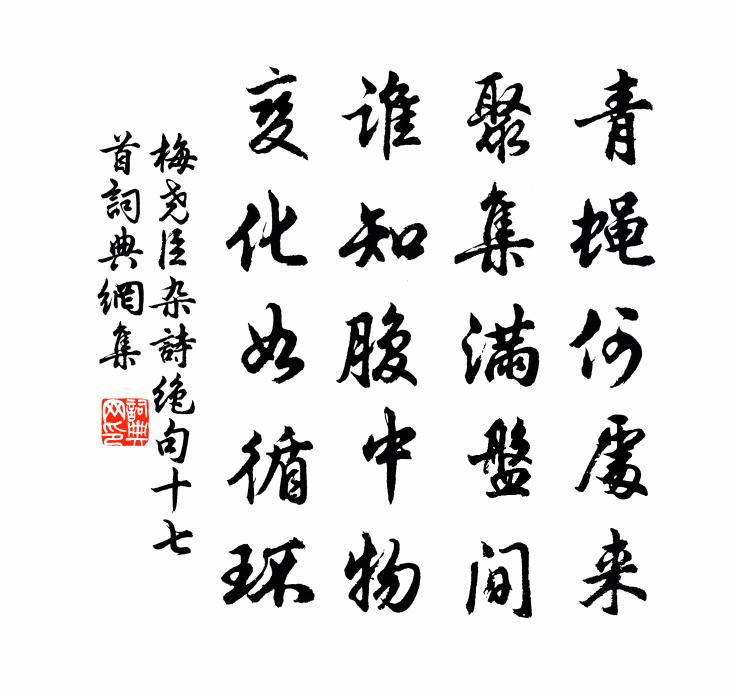 青蝇何處来
聚集滿盤间
谁知腹中物
变化如循环
梅尧臣杂詩绝句十七
首詞典網集
詞典
网印